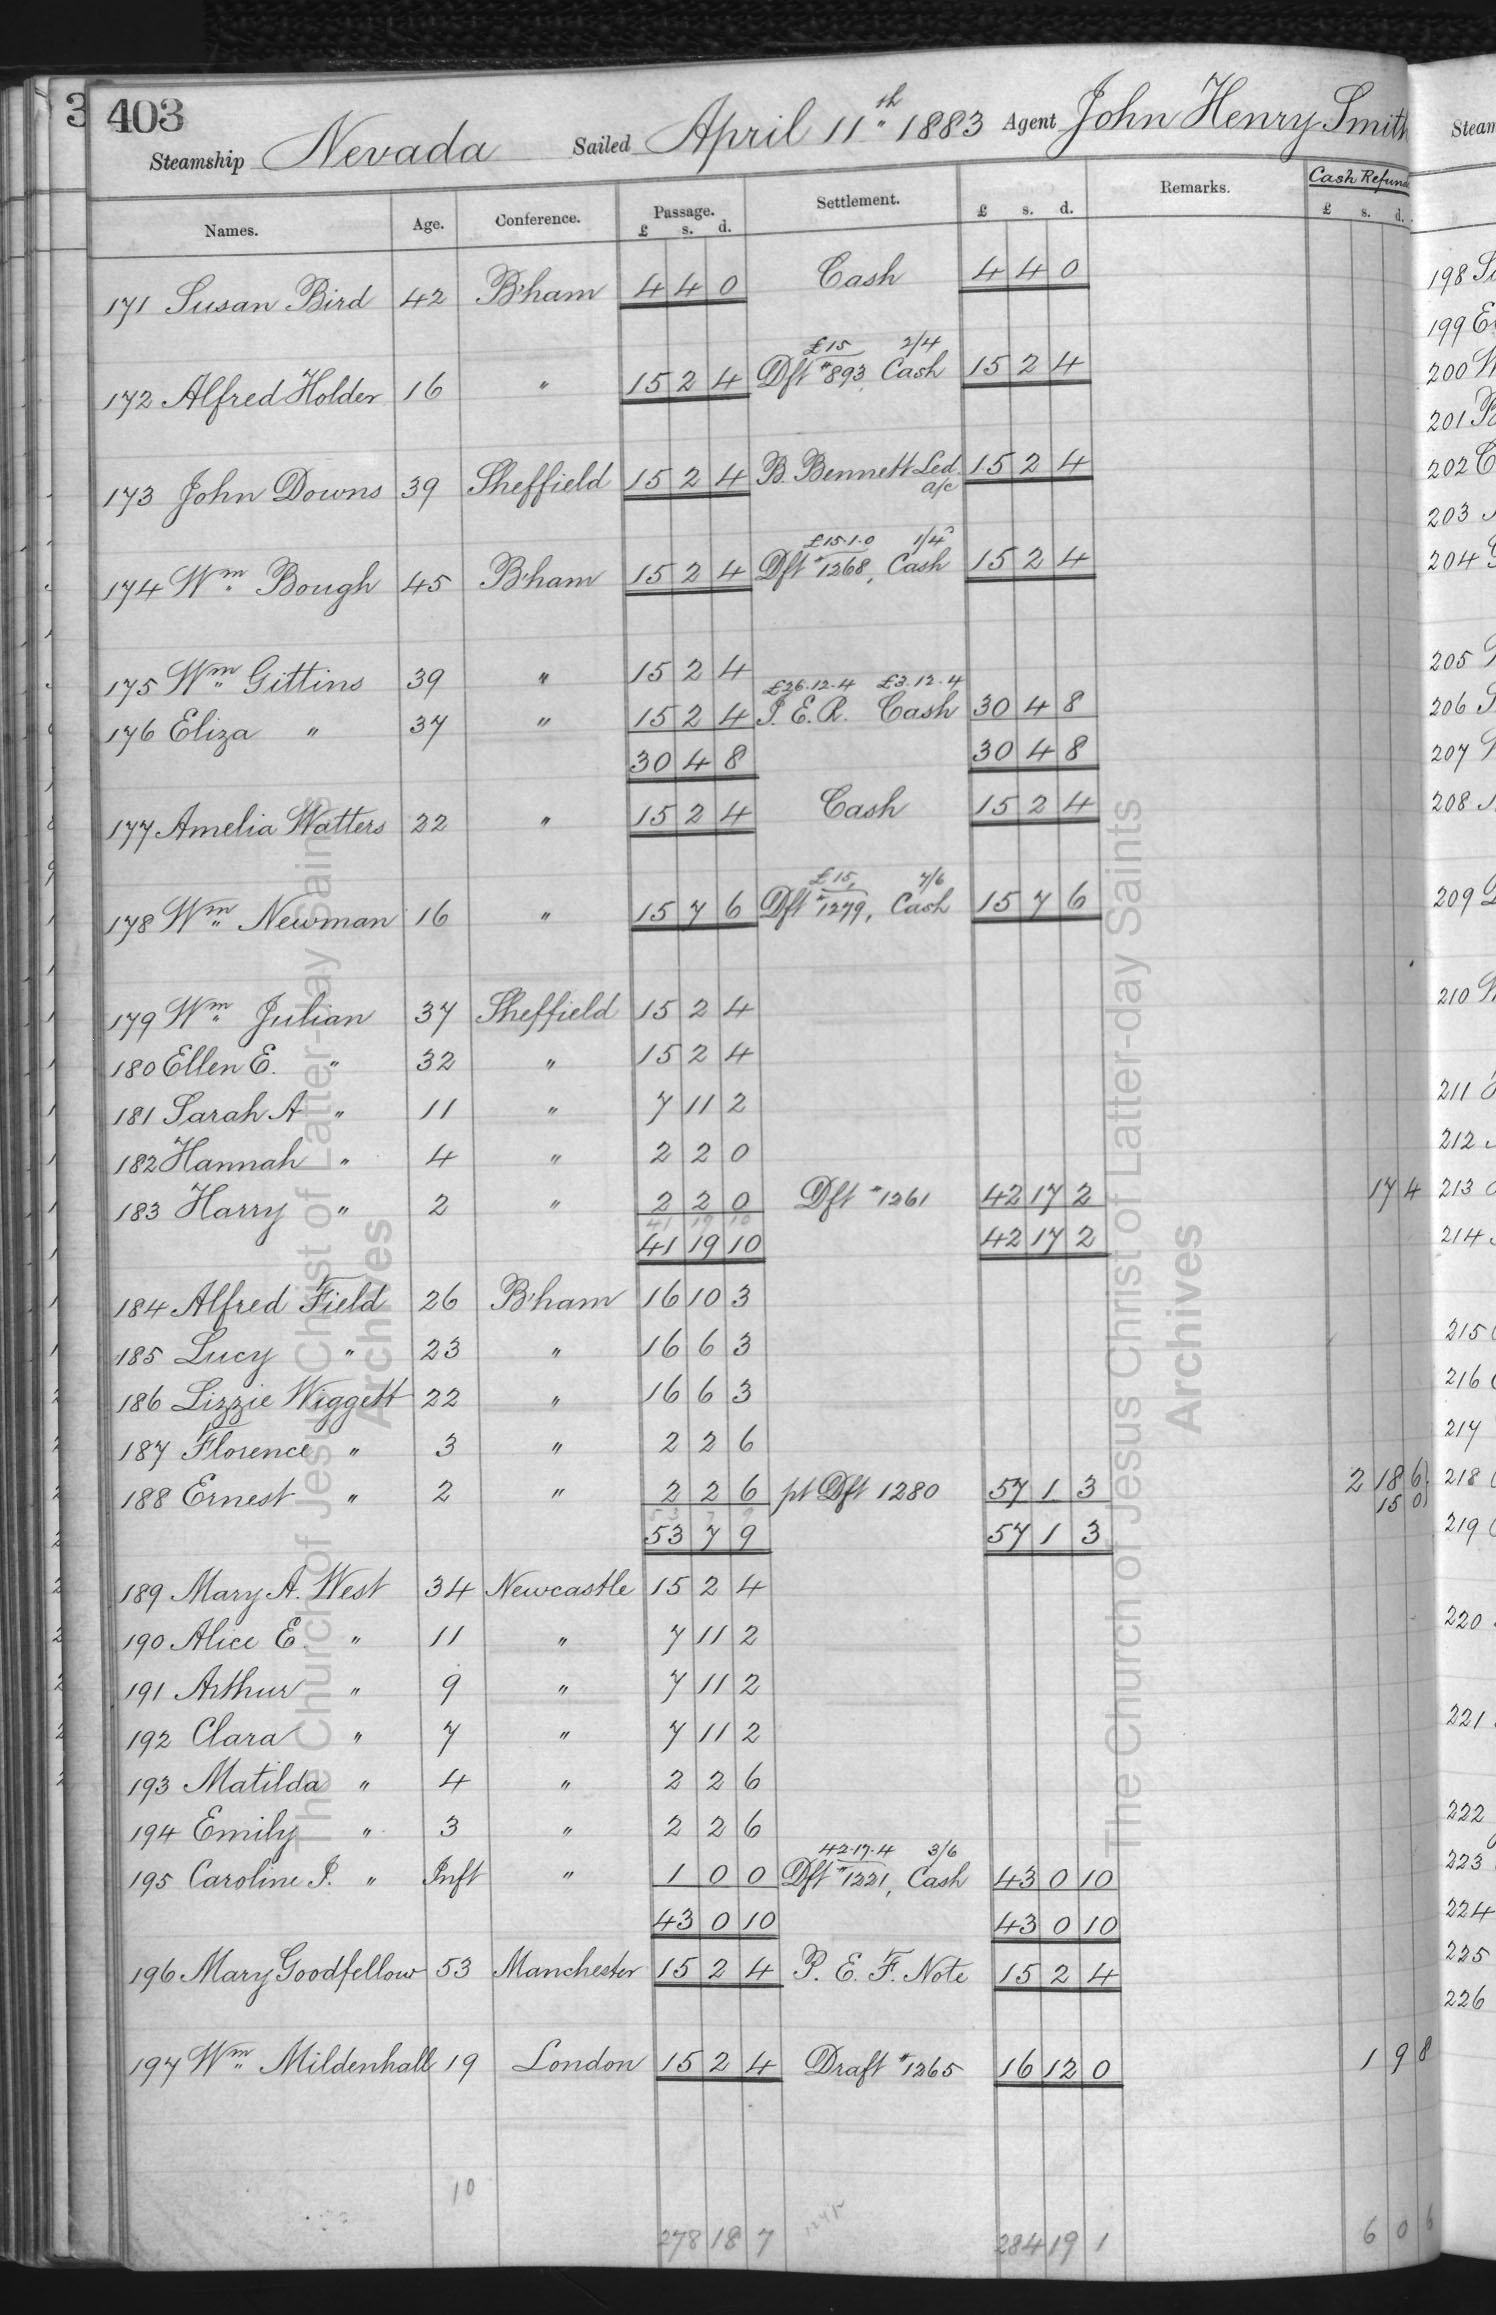 3 403
Steamship Nevada Sailed April 11th 1883 Agent John Henry Smith
Steam
Names. Age. Conference. Passage. £ s. d. Settlement. £ s. d. Remarks. Cash Refund £ s. d.
171 Susan Bird 42 B'ham 4 4 0 Cash 4 4 0
£15 2/4
172 Alfred Holder 16 " 15 2 4 Dft #893, Cash 15 2 4
173 John Downs 39 Sheffield 15 2 4 B. Bennett Led. a/c 15 2 4
£15.1.0 1/4
174 Wm. Bough 45 B'ham 15 2 4 Dft #1268, Cash 15 2 4
175 Wm. Gittins 39 " 15 2 4
£26.12.4 £3.12.4
176 Eliza " 37 " 15 2 4 I. E. R. Cash 30 4 8
30 4 8 30 4 8
177 Amelia Watters 22 " 15 2 4 Cash 15 2 4
£15, 7/6
178 Wm. Newman 16 " 15 7 6 Dft #1279, Cash 15 7 6
179 Wm. Julian 37 Sheffield 15 2 4
180 Ellen E. " 32 " 15 2 4
181 Sarah A " 11 " 7 11 2
182 Hannah " 4 " 2 2 0
183 Harry " 2 " 2 2 0 Dft #1261 42 17 2 17 4
41 19 10
41 19 10 42 17 2
184 Alfred Field 26 B'ham 16 10 3
185 Lucy " 23 " 16 6 3
186 Lizzie Wiggett 22 " 16 6 3
187 Florence " 3 " 2 2 6
188 Ernest " 2 " 2 2 6 pt Dft 1280 57 1 3 2 18 6)
15 0)
53 7 9 57 1 3
189 Mary A. West 34 Newcastle 15 2 4
190 Alice E. " 11 " 7 11 2
191 Arthur " 9 " 7 11 2
192 Clara " 7 " 7 11 2
193 Matilda " 4 " 2 2 6
194 Emily " 3 " 2 2 6
42.17.4 3/6
195 Caroline I. " Inft " 1 0 0 Dft #1221, Cash 43 0 10
43 0 10 43 0 10
196 Mary Goodfellow 53 Manchester 15 2 4 P. E. F. Note 15 2 4
197 Wm. Mildenhall 19 London 15 2 4 Draft #1265 16 12 0 1 9 8
10
278 18 7 284 19 1 6 0 6
198
199
200
201
202
203
204
205
206
207
208
209
210
211
212
213
214
215
216
217
218
219
220
221
222
223
224
225
226
The Church of Jesus Christ of Latter-day Saints
Archives
The Church of Jesus Christ of Latter-day Saints
Archives